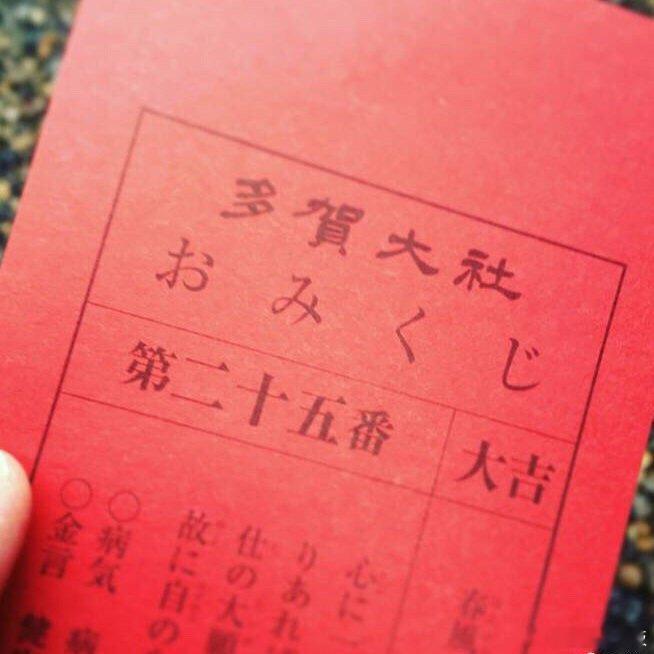 多賀大社
おみくじ
第二十五番 大吉
春風
心に一
りあれば
仕の大願
故に自の
〇病気 病
〇金言 健